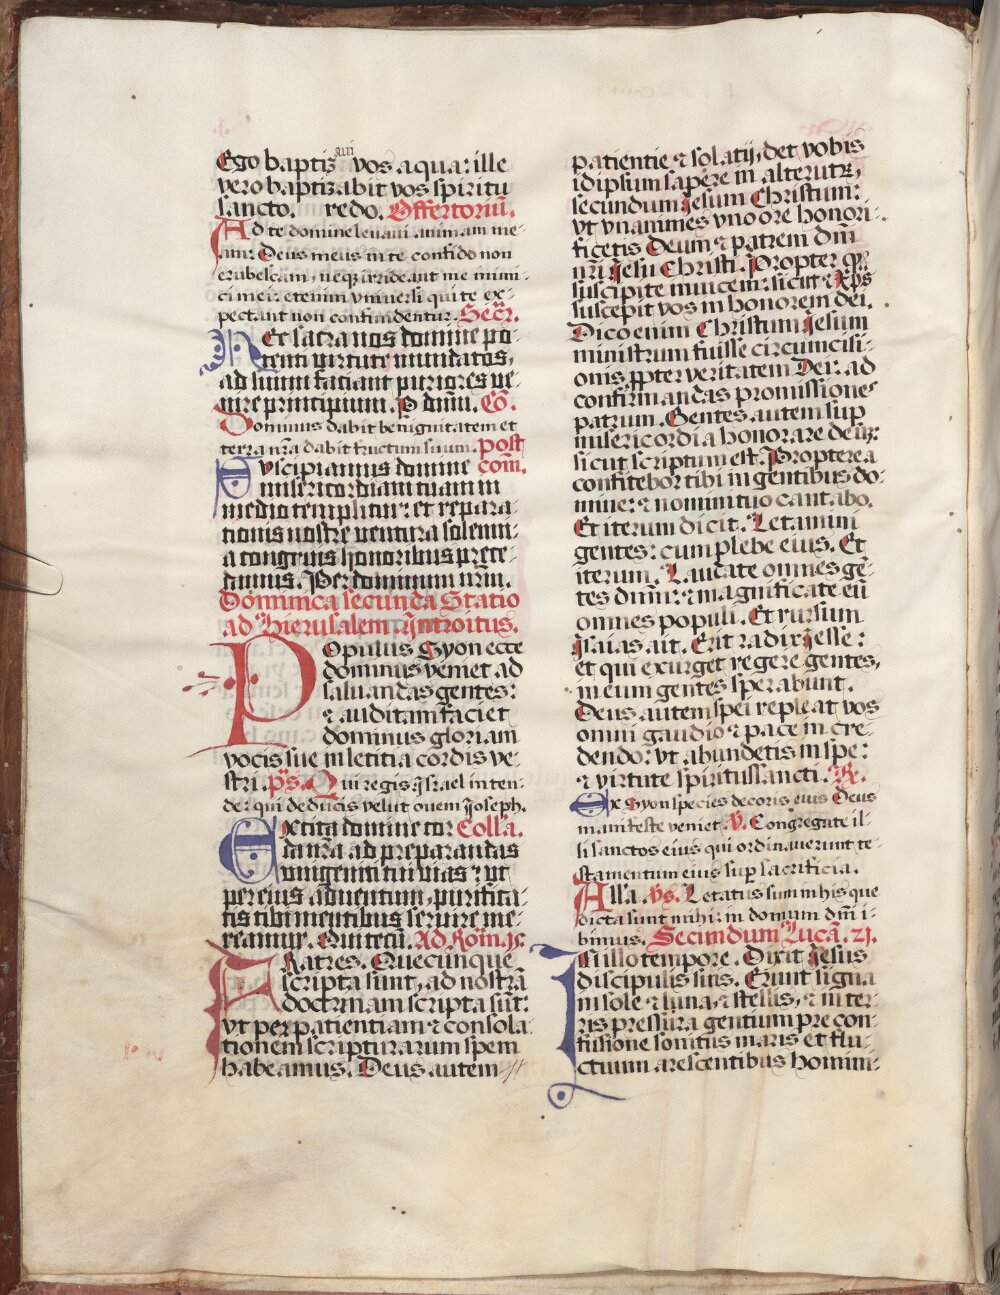 Ego baptiz aui vos aqua: ille
vero baptizabit vos spiritu
sancto. redo. Offertoriū.
Ad te domine levavi animam me-
am: Deus meus in te confido non
erubescam, neqȝ irrideant me inimi-
ci mei: etenim vniuersi qui te ex-
pectant non confundentur. Secr̄.
Nec sacra nos domine po-
tenti virtute mundatos,
ad suum faciant puriores ve-
nire principium. P dnm̄. Cō.
Dominus dabit benignitatem et
terra nr̄a dabit fructum suum. post
Suscipiamus domine com̄.
misericordiam tuam in
medio templi tui: et repara-
tionis nostre ventura solemni-
a congruis honoribus prece-
damus. Per dominum nr̄m.
Dominica secunda Statio
ad Hierusalem ȳntroitus.
Populus Syon ecce
dominus veniet ad
saluandas gentes:
⁊ auditam faciet
dominus gloriam
vocis sue in letitia cordis ve-
stri. p̄s. Qui regis Israel inten-
de: qui deducis velut ouem Ioseph.
Excita domine cor Coll'a.
da nr̄a ad preparandas
vnigeniti tui vias: vt
per eius aduentum, purifica-
tis tibi mentibus seruire me-
reamur. Qui tecū. Ad Rom̄. 15.
Fratres. Quecunque
scripta sunt, ad nostrā
doctrinam scripta sūt:
vt per patientiam ⁊ consola-
tionem scripturarum spem
habeamus. Deus autem
patientie ⁊ solatij, det vobis
idipsum sapere in alterutrȝ,
secundum Jesum Christum:
vt vnanimes vno ore honori-
ficetis Deum ⁊ patrem dn̄i
nr̄i Jesu Christi. Propter qd̄
suscipite inuicem: sicut ⁊ Xp̄s
suscepit vos in honorem dei.
Dico enim Christum Jesum
ministrum fuisse circumcisi-
onis ꝓpter veritatem Dei: ad
confirmandas promissiones
patrum. Gentes autem sup̄
misericordia honorare deuȝ:
sicut scriptum est. Propterea
confitebor tibi in gentibus do-
mine: ⁊ nomini tuo cantabo.
Et iterum dicit. Letamini
gentes: cum plebe eius. Et
iterum. Laudate omnes gē-
tes dn̄m: ⁊ magnificate eū
omnes populi. Et rursum
Isaias ait. Erit radix Iesse:
et qui exurget regere gentes,
in eum gentes sperabunt.
Deus autem spei repleat vos
omni gaudio ⁊ pace in cre-
dendo: vt abundetis in spe:
⁊ virtute spiritussancti. R̄.
Ex Syon species decoris eius Deus
manifeste veniet. V. Congregate il-
li sanctos eius qui ordinauerunt te-
stamentum eius sup̄ sacrificia.
All'a. V̄s. Letatus sum in his que
dicta sunt mihi: in domum dn̄i i-
bimus. Secundum Lucā. 21.
In illo tempore. Dixit Jesus
discipulis suis. Erunt signa
in sole ⁊ luna, ⁊ stellis, ⁊ in ter-
ris pressura gentium pre con-
fusione sonitus maris et flu-
ctuum arescentibus homini-